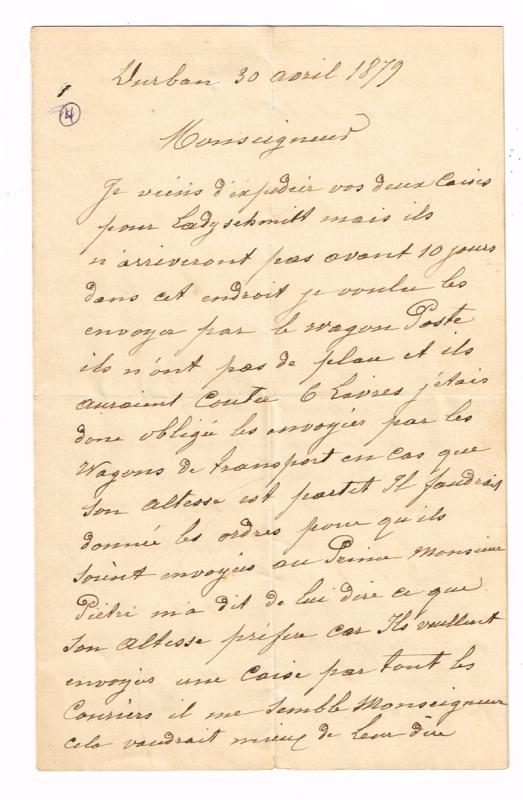 Durban 30 avril 1879
4
Monseigneur
Je viens d'expedier vos deux Caises
pour Ladyschmitt mais ils
n'arriveront pas avant 10 jours
dans cet endroit je voulee les
envoyer par le wagon Poste
ils n'ont pas de place et ils
auraient coutee 6 Livres j'etais
donc obligee les envoyier par les
Wagons de transport en cas que
Son Altesse est partet Il faudrait
donnee les ordres pour qu'ils
soient envoyees au Prince Monsieur
Pietri m'a dit de Lui dire ce que
Son Altesse prefere car Ils veullent
envoyes une Caise par tout les
Couriers il me semble Monseigneur
cela vaudrait mieux de Leur dire